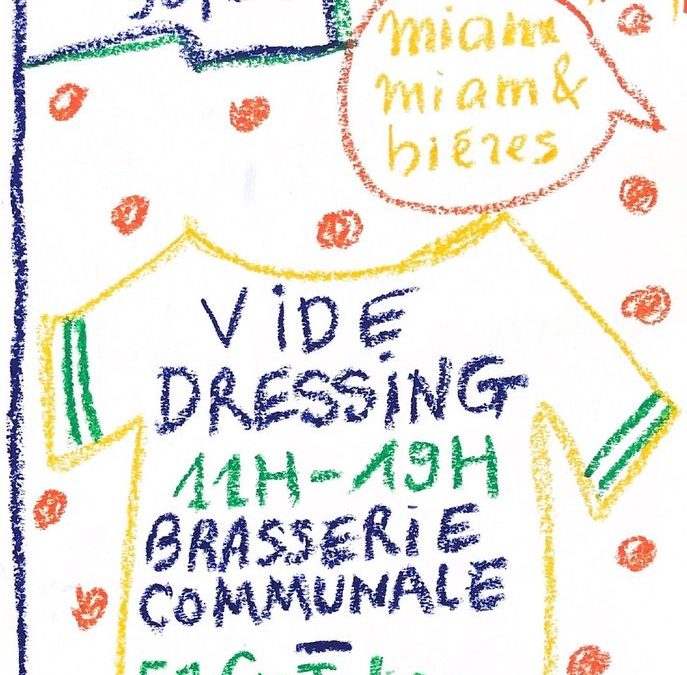 miam
miam &
bières
ViDE
DRESSiNG
11H-19H
BRASSERiE
COMMUNALE